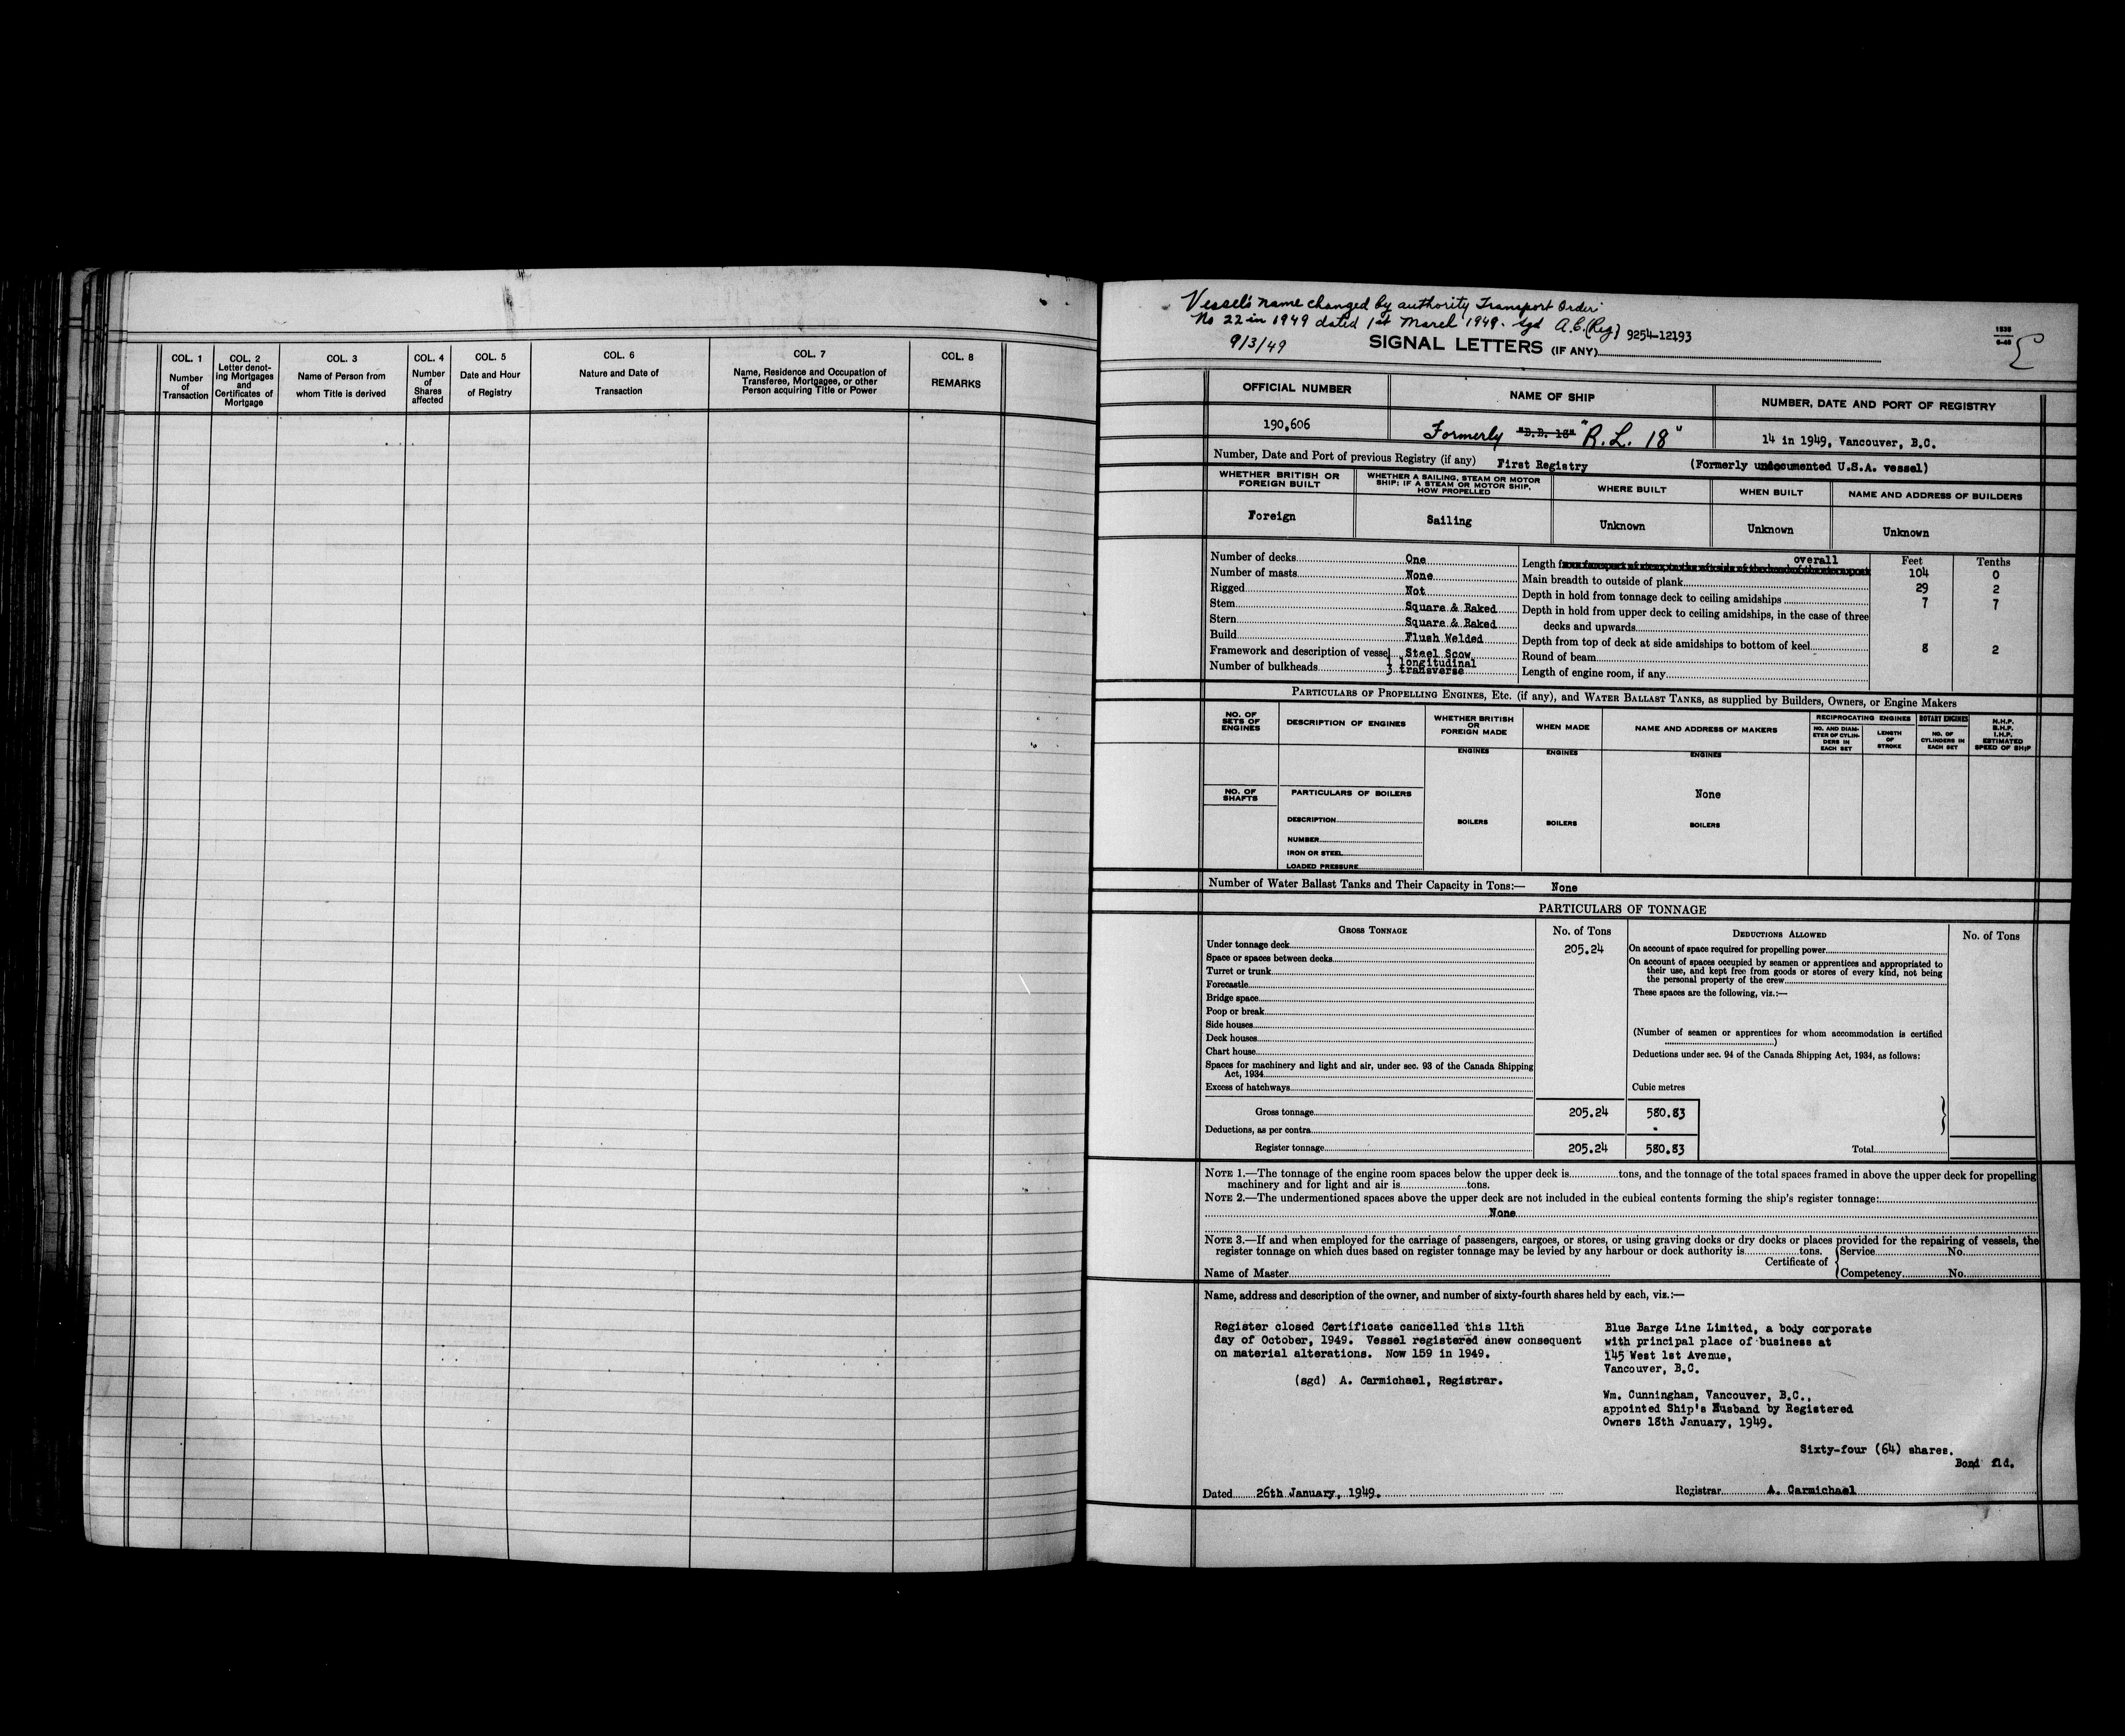 COL. 1
Number
of
Transaction
COL. 2
Letter denot-
ing Mortgages
and
Certificates of
Mortgage
COL. 3
Name of Person from
whom Title is derived
COL. 4
Number
of
Shares
affected
COL. 5
Date and Hour
of Registry
COL. 6
Nature and Date of
Transaction
COL. 7
Name, Residence and Occupation of
Transferee, Mortgagee, or other
Person acquiring Title or Power
COL. 8
REMARKS
Vessel's name changed by authority Transport Order
No 22 in 1949 dated 1st March 1949. Sgd A.C. (Reg) 9254-12193
9/3/49
SIGNAL LETTERS (IF ANY)
OFFICIAL NUMBER
NAME OF SHIP
NUMBER, DATE AND PORT OF REGISTRY
190,606
Formerly "R.L. 18"
14 in 1949, Vancouver, B.C.
Number, Date and Port of previous Registry (if any) First Registry (Formerly undocumented U.S.A. vessel)
WHETHER BRITISH OR
FOREIGN BUILT
WHETHER A SAILING, STEAM OR MOTOR
SHIP; IF A STEAM OR MOTOR SHIP,
HOW PROPELLED
WHERE BUILT
WHEN BUILT
NAME AND ADDRESS OF BUILDERS
Foreign
Sailing
Unknown
Unknown
Unknown
Number of decks One
Number of masts None
Rigged Not
Stem Square & Raked
Stern Square & Raked
Build Flush Welded
Framework and description of vessel Steel Scow
Number of bulkheads 1 longitudinal
3 transverse
Feet Tenths
Length overall 104 0
Main breadth to outside of plank 29 2
Depth in hold from tonnage deck to ceiling amidships 7 7
Depth in hold from upper deck to ceiling amidships, in the case of three
decks and upwards
Depth from top of deck at side amidships to bottom of keel 8 2
Round of beam
Length of engine room, if any
PARTICULARS OF PROPELLING ENGINES, ETC. (if any), and WATER BALLAST TANKS, as supplied by Builders, Owners, or Engine Makers
NO. OF
SETS OF
ENGINES
DESCRIPTION OF ENGINES
WHETHER BRITISH
OR
FOREIGN MADE
WHEN MADE
NAME AND ADDRESS OF MAKERS
RECIPROCATING ENGINES
NO. AND DIAM-
ETER OF CYLIN-
DERS IN
EACH SET
LENGTH
OF
STROKE
ROTARY ENGINES
NO. OF
CYLINDERS IN
EACH SET
N.H.P.
B.H.P.
I.H.P.
ESTIMATED
SPEED OF SHIP
ENGINES
ENGINES
ENGINES
NO. OF
SHAFTS
PARTICULARS OF BOILERS
None
DESCRIPTION
BOILERS
BOILERS
BOILERS
NUMBER
IRON OR STEEL
LOADED PRESSURE
Number of Water Ballast Tanks and Their Capacity in Tons:— None
PARTICULARS OF TONNAGE
GROSS TONNAGE
No. of Tons
DEDUCTIONS ALLOWED
No. of Tons
Under tonnage deck 205.24
Space or spaces between decks
Turret or trunk
Forecastle
Bridge space
Poop or break
Side houses
Deck houses
Chart house
Spaces for machinery and light and air, under sec. 93 of the Canada Shipping
Act, 1934
Excess of hatchways
On account of space required for propelling power
On account of spaces occupied by seamen or apprentices and appropriated to
their use, and kept free from goods or stores of every kind, not being
the personal property of the crew
These spaces are the following, viz.:—
(Number of seamen or apprentices for whom accommodation is certified
)
Deductions under sec. 94 of the Canada Shipping Act, 1934, as follows:
Cubic metres
Gross tonnage 205.24 580.83
Deductions, as per contra
Register tonnage 205.24 580.83
Total
NOTE 1.—The tonnage of the engine room spaces below the upper deck is tons, and the tonnage of the total spaces framed in above the upper deck for propelling
machinery and for light and air is tons.
NOTE 2.—The undermentioned spaces above the upper deck are not included in the cubical contents forming the ship's register tonnage:
None
NOTE 3.—If and when employed for the carriage of passengers, cargoes, or stores, or using graving docks or dry docks or places provided for the repairing of vessels, the
register tonnage on which dues based on register tonnage may be levied by any harbour or dock authority is tons.
Certificate of
Service No.
Competency No.
Name of Master
Name, address and description of the owner, and number of sixty-fourth shares held by each, viz.:—
Register closed Certificate cancelled this 11th
day of October, 1949. Vessel registered anew consequent
on material alterations. Now 159 in 1949.
(sgd) A. Carmichael, Registrar.
Blue Barge Line Limited, a body corporate
with principal place of business at
145 West 1st Avenue,
Vancouver, B.C.
Wm. Cunningham, Vancouver, B.C.,
appointed Ship's Husband by Registered
Owners 18th January, 1949.
Sixty-four (64) shares.
Bond fld.
Dated 26th January, 1949.
Registrar A. Carmichael